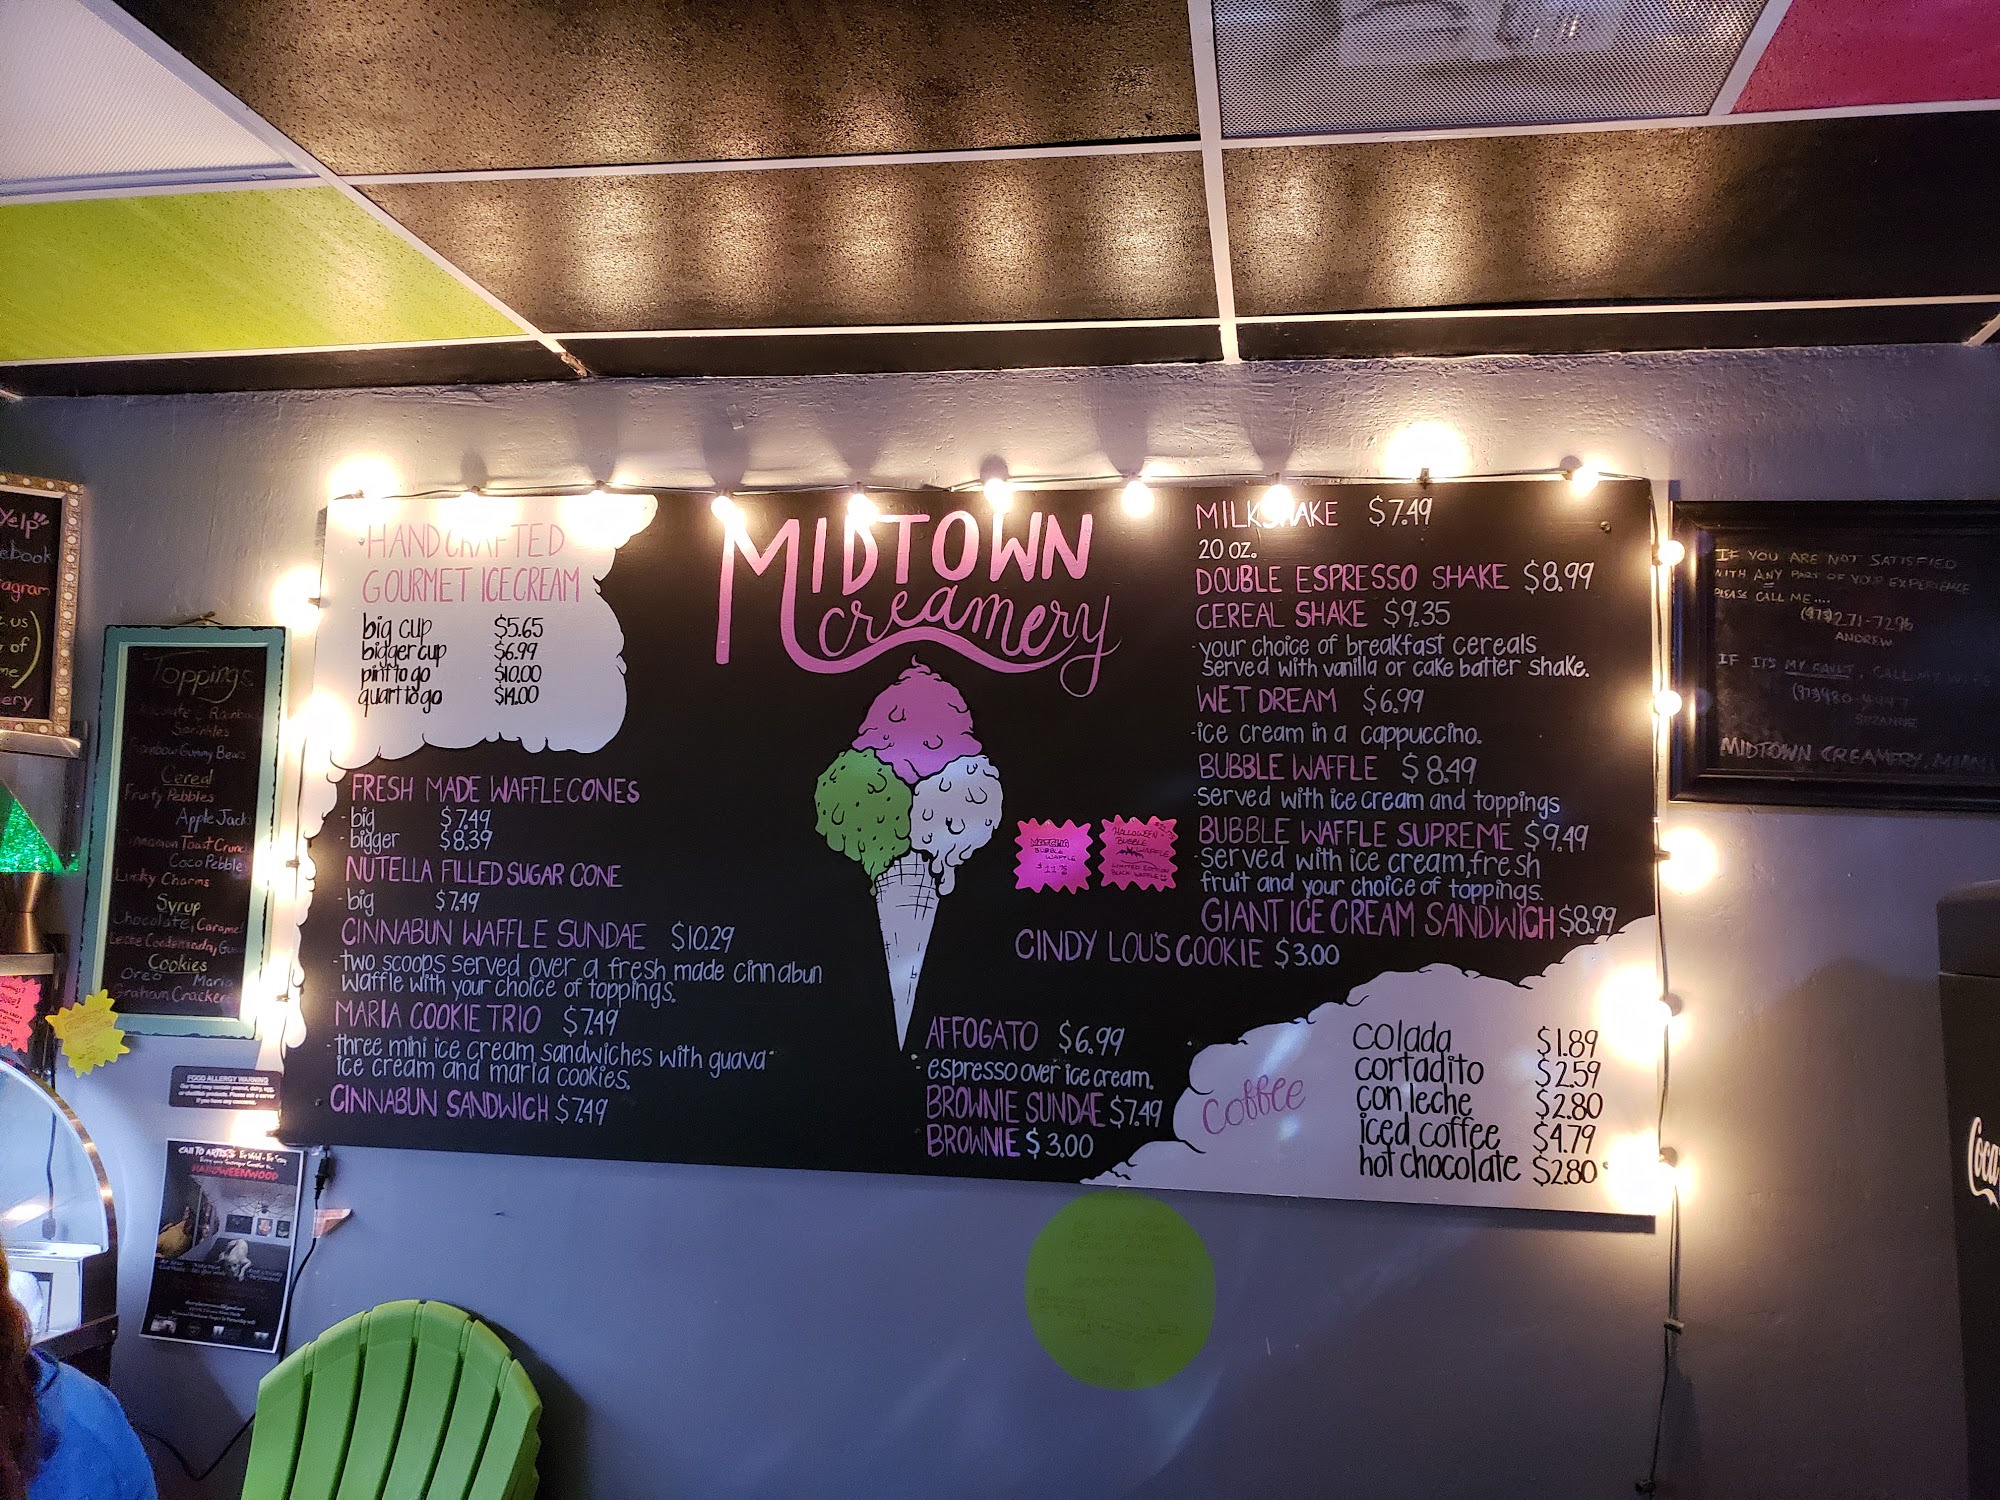 Yelp
ebook
agram
us
of
me)
ery
Toppings
Rainbow
Sprinkles
Rainbow Gummy Bears
Cereal
Fruity Pebbles
Apple Jacks
Cinnamon Toast Crunch
Coco Pebble
Lucky Charms
Syrup
Chocolate, Caramel
Leche Condensada,
Cookies
Oreo Maria
Graham Crackers
FOOD ALLERGY WARNING
CALL TO ARTISTS
HALLOWEENWOOD
HANDCRAFTED
GOURMET ICECREAM
big cup $5.65
bidger cup $6.99
pint to go $10.00
quart to go $14.00
FRESH MADE WAFFLECONES
- big $7.49
- bigger $8.39
NUTELLA FILLED SUGAR CONE
- big $7.49
CINNABUN WAFFLE SUNDAE $10.29
- two scoops served over a fresh made cinnabun
waffle with your choice of toppings.
MARIA COOKIE TRIO $7.49
- three mini ice cream sandwiches with guava
ice cream and maria cookies.
CINNABUN SANDWICH $7.49
MIDTOWN
creamery
BUBBLE
WAFFLE
HALLOWEEN
BUBBLE
WAFFLE
LIMITED EDITION
BLACK WAFFLE
CINDY LOU'S COOKIE $3.00
AFFOGATO $6.99
- espresso over ice cream.
BROWNIE SUNDAE $7.49
BROWNIE $3.00
MILKSHAKE $7.49
20 oz.
DOUBLE ESPRESSO SHAKE $8.99
CEREAL SHAKE $9.35
- your choice of breakfast cereals
served with vanilla or cake batter shake.
WET DREAM $6.99
- ice cream in a cappuccino.
BUBBLE WAFFLE $8.49
- served with ice cream and toppings
BUBBLE WAFFLE SUPREME $9.49
- served with ice cream, fresh
fruit and your choice of toppings.
GIANT ICE CREAM SANDWICH $8.99
coffee
colada $1.89
cortadito $2.59
con leche $2.80
iced coffee $4.79
hot chocolate $2.80
IF YOU ARE NOT SATISFIED
WITH ANY PART OF YOUR EXPERIENCE
PLEASE CALL ME....
(973)271-7296
ANDREW
IF IT'S MY FAULT, CALL MY
SUZANNE
MIDTOWN CREAMERY, MIAMI
Coca